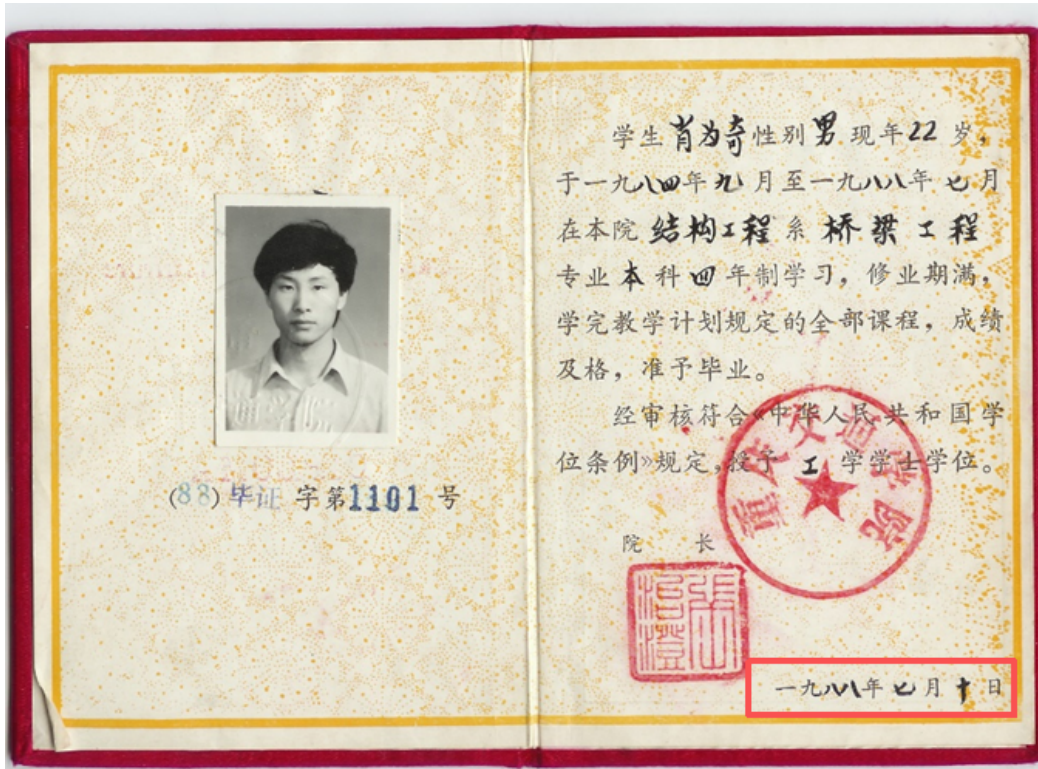 (88)毕证 字第1101 号
学生肖为奇性别男现年22岁，
于一九八四年九月至一九八八年七月
在本院结构工程系桥梁工程
专业本科四年制学习，修业期满，
学完教学计划规定的全部课程，成绩
及格，准予毕业。
经审核符合《中华人民共和国学
位条例》规定，授予工学学士学位。
重庆交通学院
院长
一九八八年七月十日